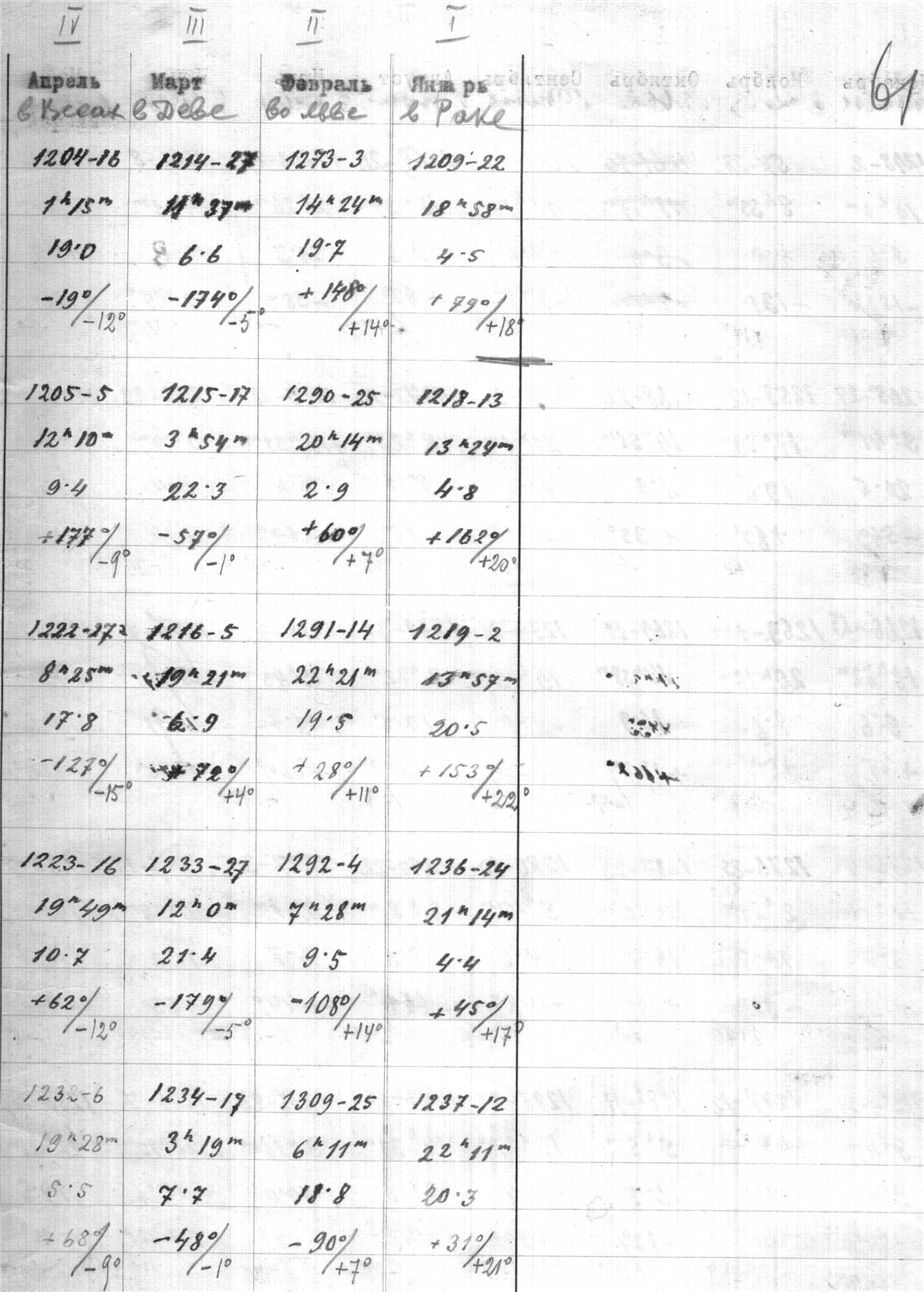 IV III II I
Апрель Март Февраль Январь 61
в Весах в Деве во Льве в Раке
1204-16 1214-27 1273-3 1209-22
1ʰ15ᵐ 11ʰ37ᵐ 14ʰ24ᵐ 18ʰ58ᵐ
19·0 6·6 19·7 4·5
-19°/-12° -174°/-5° +148°/+14° +79°/+18°
1205-5 1215-17 1290-25 1218-13
12ʰ10ᵐ 3ʰ54ᵐ 20ʰ14ᵐ 13ʰ24ᵐ
9·4 22·3 2·9 4·8
+177°/-9° -57°/-1° +60°/+7° +162°/+20°
1222-27 1216-5 1291-14 1219-2
8ʰ25ᵐ 19ʰ21ᵐ 22ʰ21ᵐ 13ʰ57ᵐ
17·8 6·9 19·5 20·5
-127°/-15° +72°/+4° +28°/+11° +153°/+22°
1223-16 1233-27 1292-4 1236-24
19ʰ49ᵐ 12ʰ0ᵐ 7ʰ28ᵐ 21ʰ14ᵐ
10·7 21·4 9·5 4·4
+62°/-12° -179°/-5° -108°/+14° +45°/+17°
1232-6 1234-17 1309-25 1237-12
19ʰ28ᵐ 3ʰ19ᵐ 6ʰ11ᵐ 22ʰ11ᵐ
5·5 7·7 18·8 20·3
+68°/-9° -48°/-1° -90°/+7° +31°/+21°